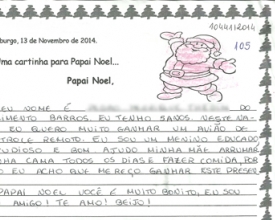 104412014
105
burgo, 13 de Novembro de 2014.
ma cartinha para Papai Noel...
Papai Noel,
EU NOME É DO
IMENTO BARROS. EU TENHO 5 ANOS. NESTE NA-
EU QUERO MUITO GANHAR UM AVIÃO DE
TROLE REMOTO. EU SOU UM MENINO EDUCADO
UDIOSO E BOM AJUDO MINHA MÃE ARRUMAR
HA CAMA TODOS OS DIAS E FAZER COMIDA, POR
O EU ACHO QUE MEREÇO GANHAR ESTE PRESEN
PAPAI NOEL VOCÊ É MUITO BONITO, EU SOU
AMIGO! TE AMO! BEIJO!